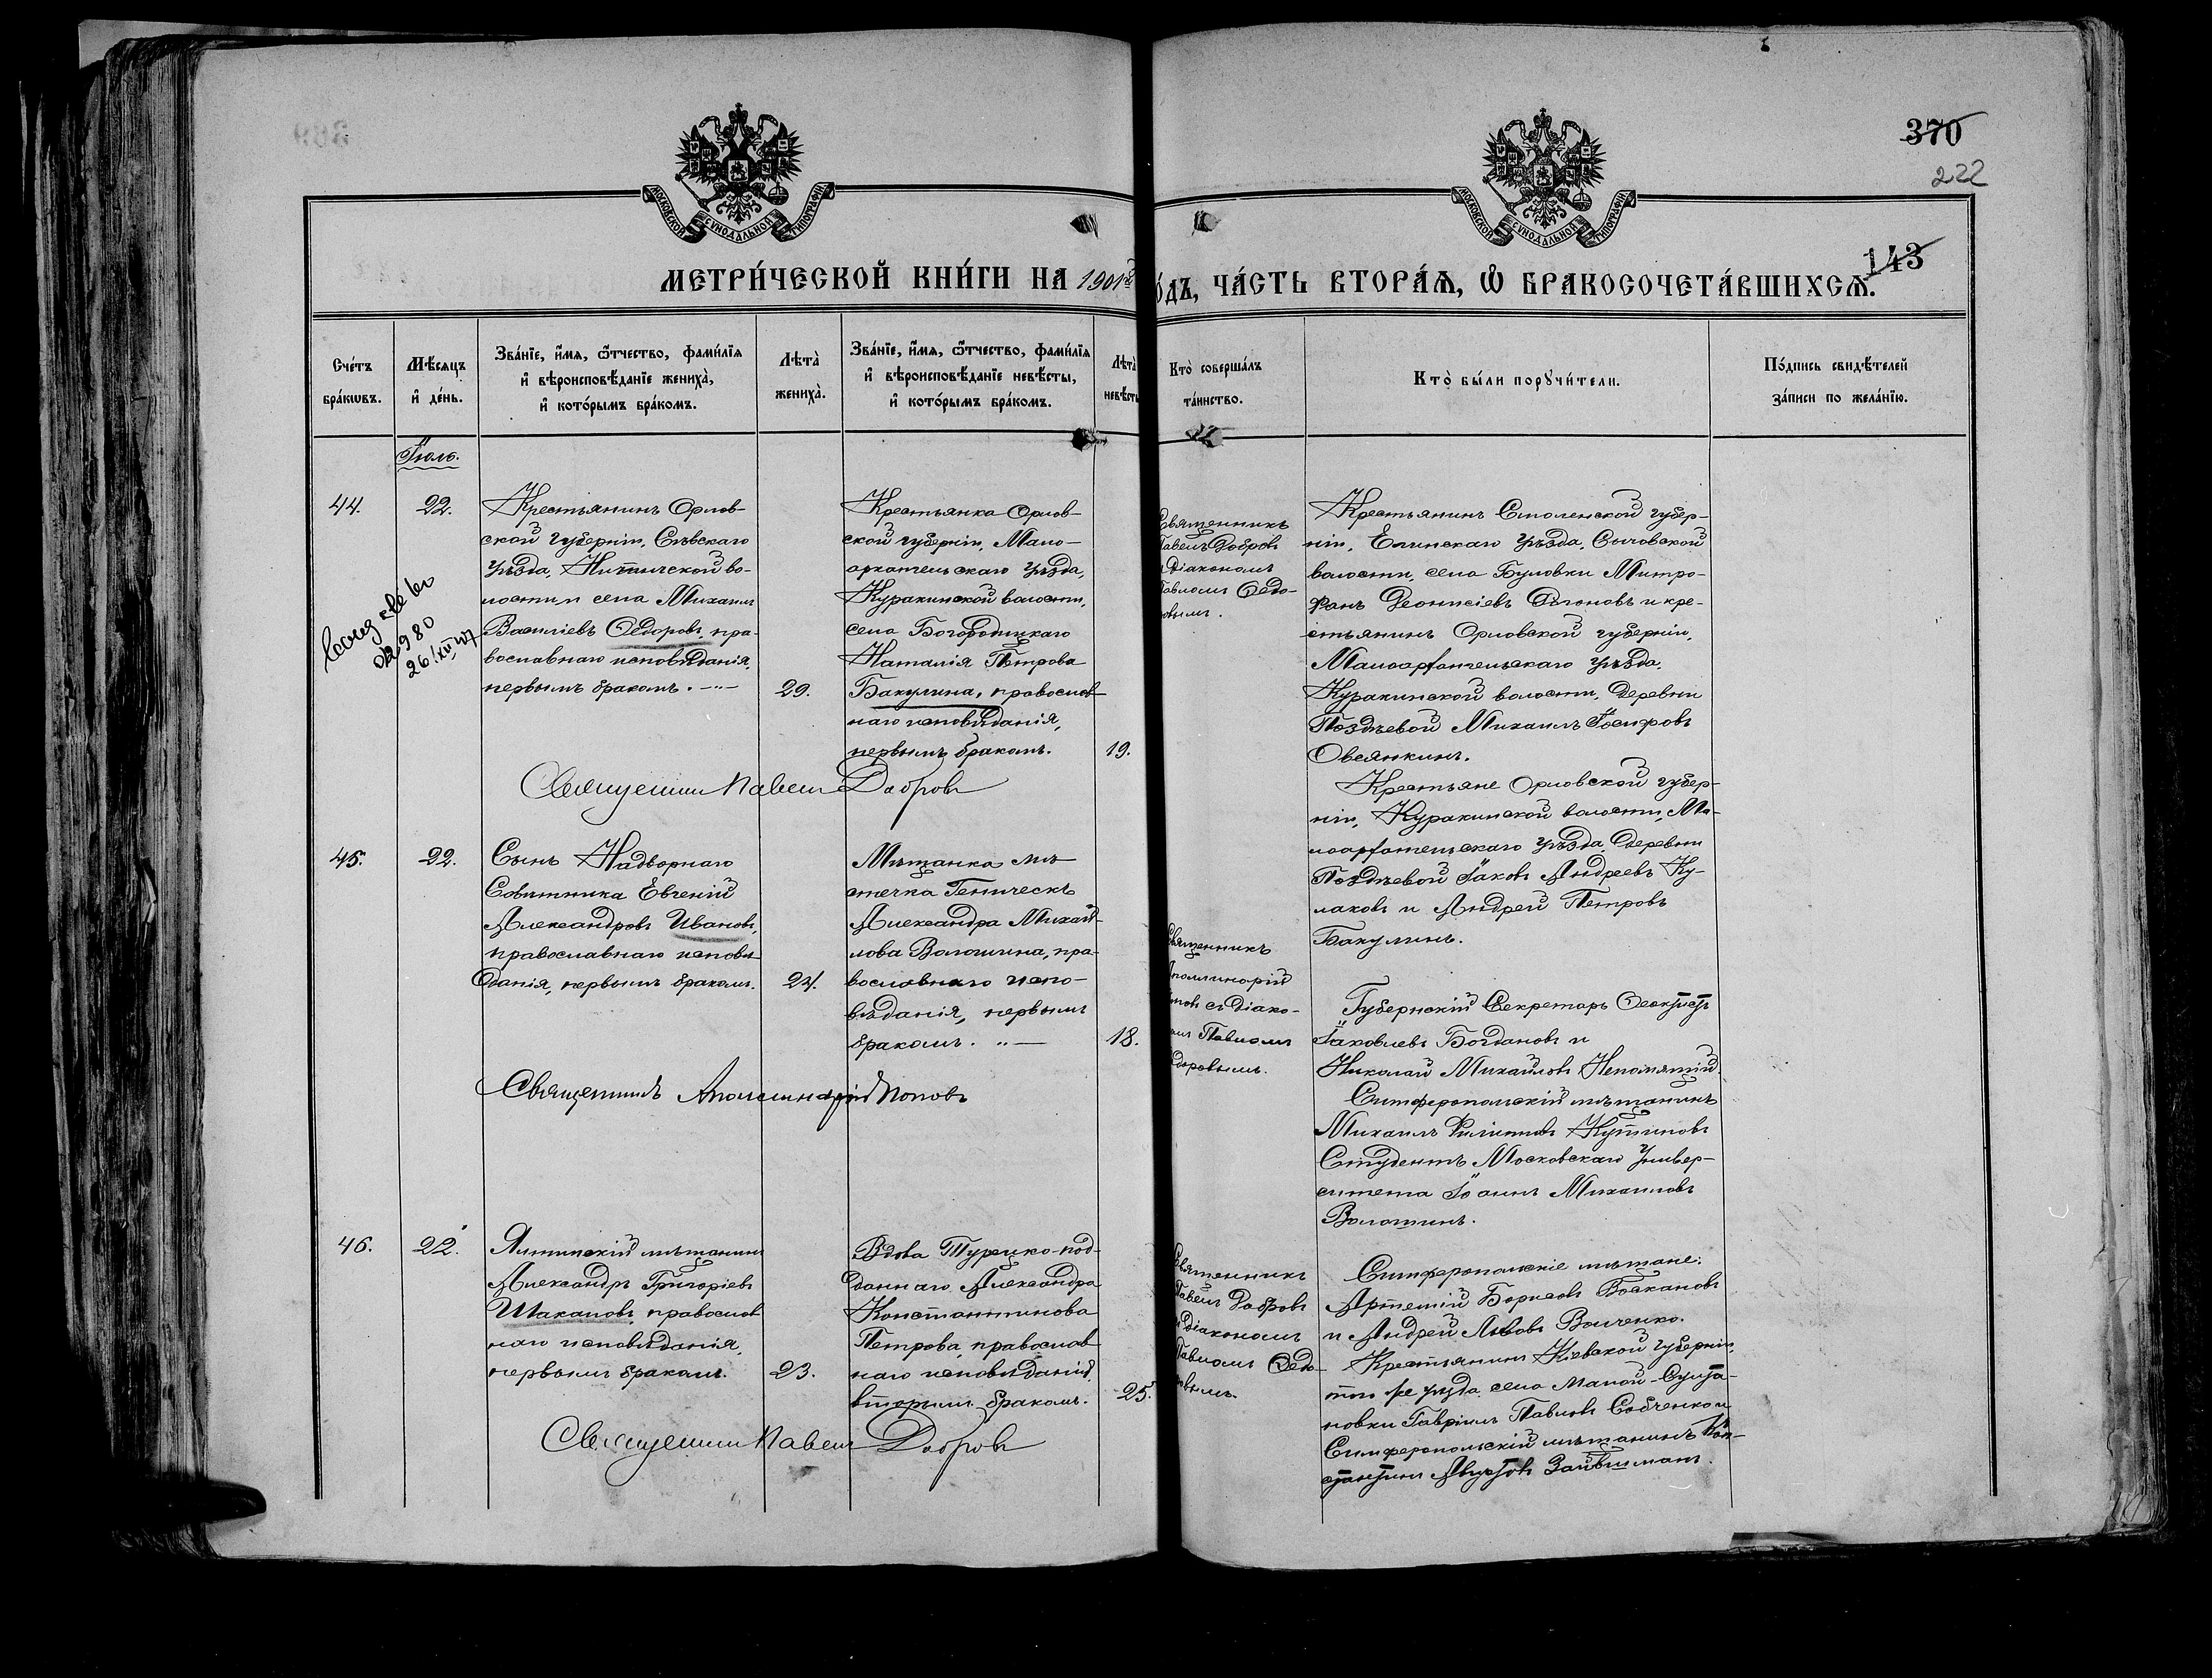 370
222
143
МОСКОВСКОЙ СѴНОДАЛЬНОЙ ТИПОГРАФІИ
МОСКОВСКОЙ СѴНОДАЛЬНОЙ ТИПОГРАФІИ
МЕТРИ́ЧЕСКОЙ КНИ́ГИ НА 1901й
О́ДЪ, ЧА́СТЬ ВТОРА́Ѧ, Ѡ БРАКОСОЧЕТА́ВШИХСѦ.
Сче́тъ
бра́кѡвъ.
Мѣ́сяцъ
и де́нь.
Зва́нїе, и́мѧ, ѻ́тчество, фами́лїѧ
и вѣроисповѣ́данїе жениха̀,
и кото́рымъ бра́комъ.
Лѣта̀
жениха̀.
Зва́нїе, и́мѧ, ѻ́тчество, фами́лїѧ
и вѣроисповѣ́данїе невѣ́сты,
и кото́рымъ бра́комъ.
Лѣта̀
невѣ́сты
Кто̀ соверша́лъ
та́инство.
Кто̀ бы́ли порꙋчи́тели.
По́дпись свидѣ́телей
за́писи по жела́нїю.
Іюль.
44.
22.
Крестьянинъ Орлов-
ской губерніи, Сѣвскаго
уѣзда,
во-
лости, села Михаилъ
Васильевъ Ѳедоровъ, пра-
вославнаго исповѣданія,
первымъ бракомъ.
29.
Крестьянка Орлов-
ской губерніи, Мало-
архангельскаго уѣзда,
Куракинской волости,
села Богородицкаго
Наталія Петрова
Бакулина, православ-
наго исповѣданія,
первымъ бракомъ.
19.
Священникъ Павелъ Добровъ
02980
26/XII 47
Священникъ
Павелъ Добровъ
діакономъ
Павломъ Ѳедо-
овымъ.
Крестьянинъ Смоленской губер-
ніи, Елинскаго уѣзда, Сычовской
волости, села Буловки Митро-
фанъ Деонисіевъ и кре-
стьянинъ Орловской губерніи,
Малоархангельскаго уѣзда,
Куракинской волости, деревни
Поздѣевой Михаилъ Іосифовъ
Овсянкинъ.
Крестьяне Орловской губер-
ніи, Куракинской волости, Ма-
лоархангельскаго уѣзда, деревни
Поздѣевой Іаковъ Андреевъ Ку-
лаковъ и Андрей Петровъ
Бакулинъ.
45.
22.
Сынъ Надворнаго
Совѣтника Евгеній
Александровъ Ивановъ,
православнаго исповѣ-
данія, первымъ бракомъ.
24.
Мѣщанка мѣ-
стечка Геническъ
Александра Михай-
лова Волошина, пра-
вославнаго испо-
вѣданія, первымъ
бракомъ.
18.
Священникъ Аполлинарій Поповъ
вященникъ
Аполлинарій
повъ съ діако-
омъ Павломъ
доровымъ.
Губернскій Секретарь Ѳеоктистъ
Іаковлевъ Богдановъ и
Николай Михайловъ Непомнящій.
Симферопольскій мѣщанинъ
Михаилъ Филипповъ Кущиновъ
Студентъ Московскаго Универ-
ситета Іоаннъ Михаиловъ
Волошинъ.
46.
22.
Ялтинскій мѣщанинъ
Александръ Григоріевъ
Шакаловъ, православ
наго исповѣданія,
первымъ бракомъ.
23.
Вдова Турецко-под-
даннаго Александра
Константинова
Петрова, православ
наго исповѣданія,
вторымъ бракомъ.
25.
Священникъ Павелъ Добровъ
Священникъ
Павелъ Добровъ
діакономъ
Павломъ Ѳедо-
овымъ.
Симферопольскіе мѣщане:
Артемій Борисовъ
и Андрей Львовъ Волченко.
Крестьянинъ Кіевской губерніи,
того же уѣзда, села Малой-Султа-
новки Гавріилъ Павловъ Собченко и
Симферопольскій мѣщанинъ Кон-
стантинъ Августовъ